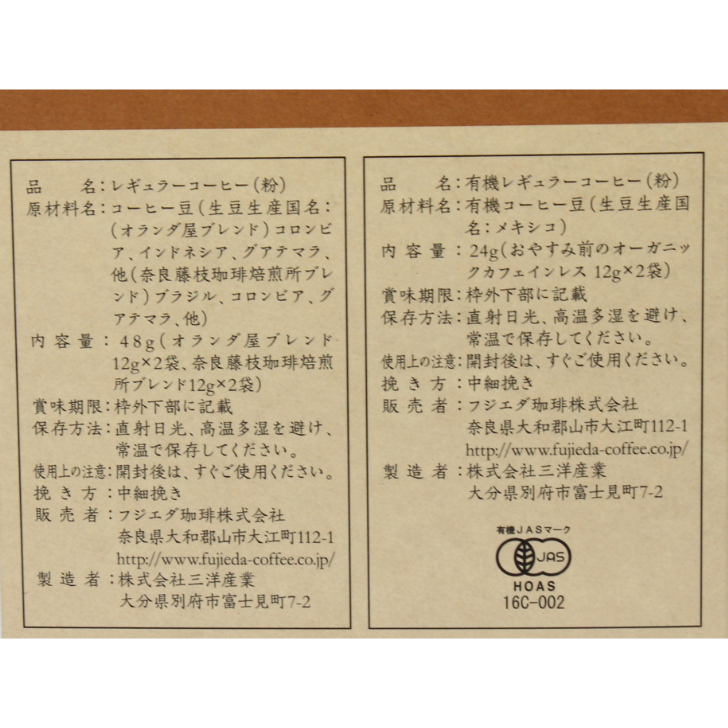 品　　名：レギュラーコーヒー（粉）
原材料名：コーヒー豆（生豆生産国名：
（オランダ屋ブレンド）コロンビ
ア、インドネシア、グアテマラ、
他（奈良藤枝珈琲焙煎所ブレ
ンド）ブラジル、コロンビア、グ
アテマラ、他）
内容量：48g（オランダ屋ブレンド
12g×2袋、奈良藤枝珈琲焙煎
所ブレンド12g×2袋）
賞味期限：枠外下部に記載
保存方法：直射日光、高温多湿を避け、
常温で保存してください。
使用上の注意：開封後は、すぐご使用ください。
挽き方：中細挽き
販売者：フジエダ珈琲株式会社
奈良県大和郡山市大江町112-1
http://www.fujieda-coffee.co.jp/
製造者：株式会社三洋産業
大分県別府市富士見町7-2
品　　名：有機レギュラーコーヒー（粉）
原材料名：有機コーヒー豆（生豆生産国
名：メキシコ）
内容量：24g（おやすみ前のオーガニッ
クカフェインレス 12g×2袋）
賞味期限：枠外下部に記載
保存方法：直射日光、高温多湿を避け、
常温で保存してください。
使用上の注意：開封後は、すぐご使用ください。
挽き方：中細挽き
販売者：フジエダ珈琲株式会社
奈良県大和郡山市大江町112-1
http://www.fujieda-coffee.co.jp/
製造者：株式会社三洋産業
大分県別府市富士見町7-2
有機JASマーク
JAS
HOAS
16C-002